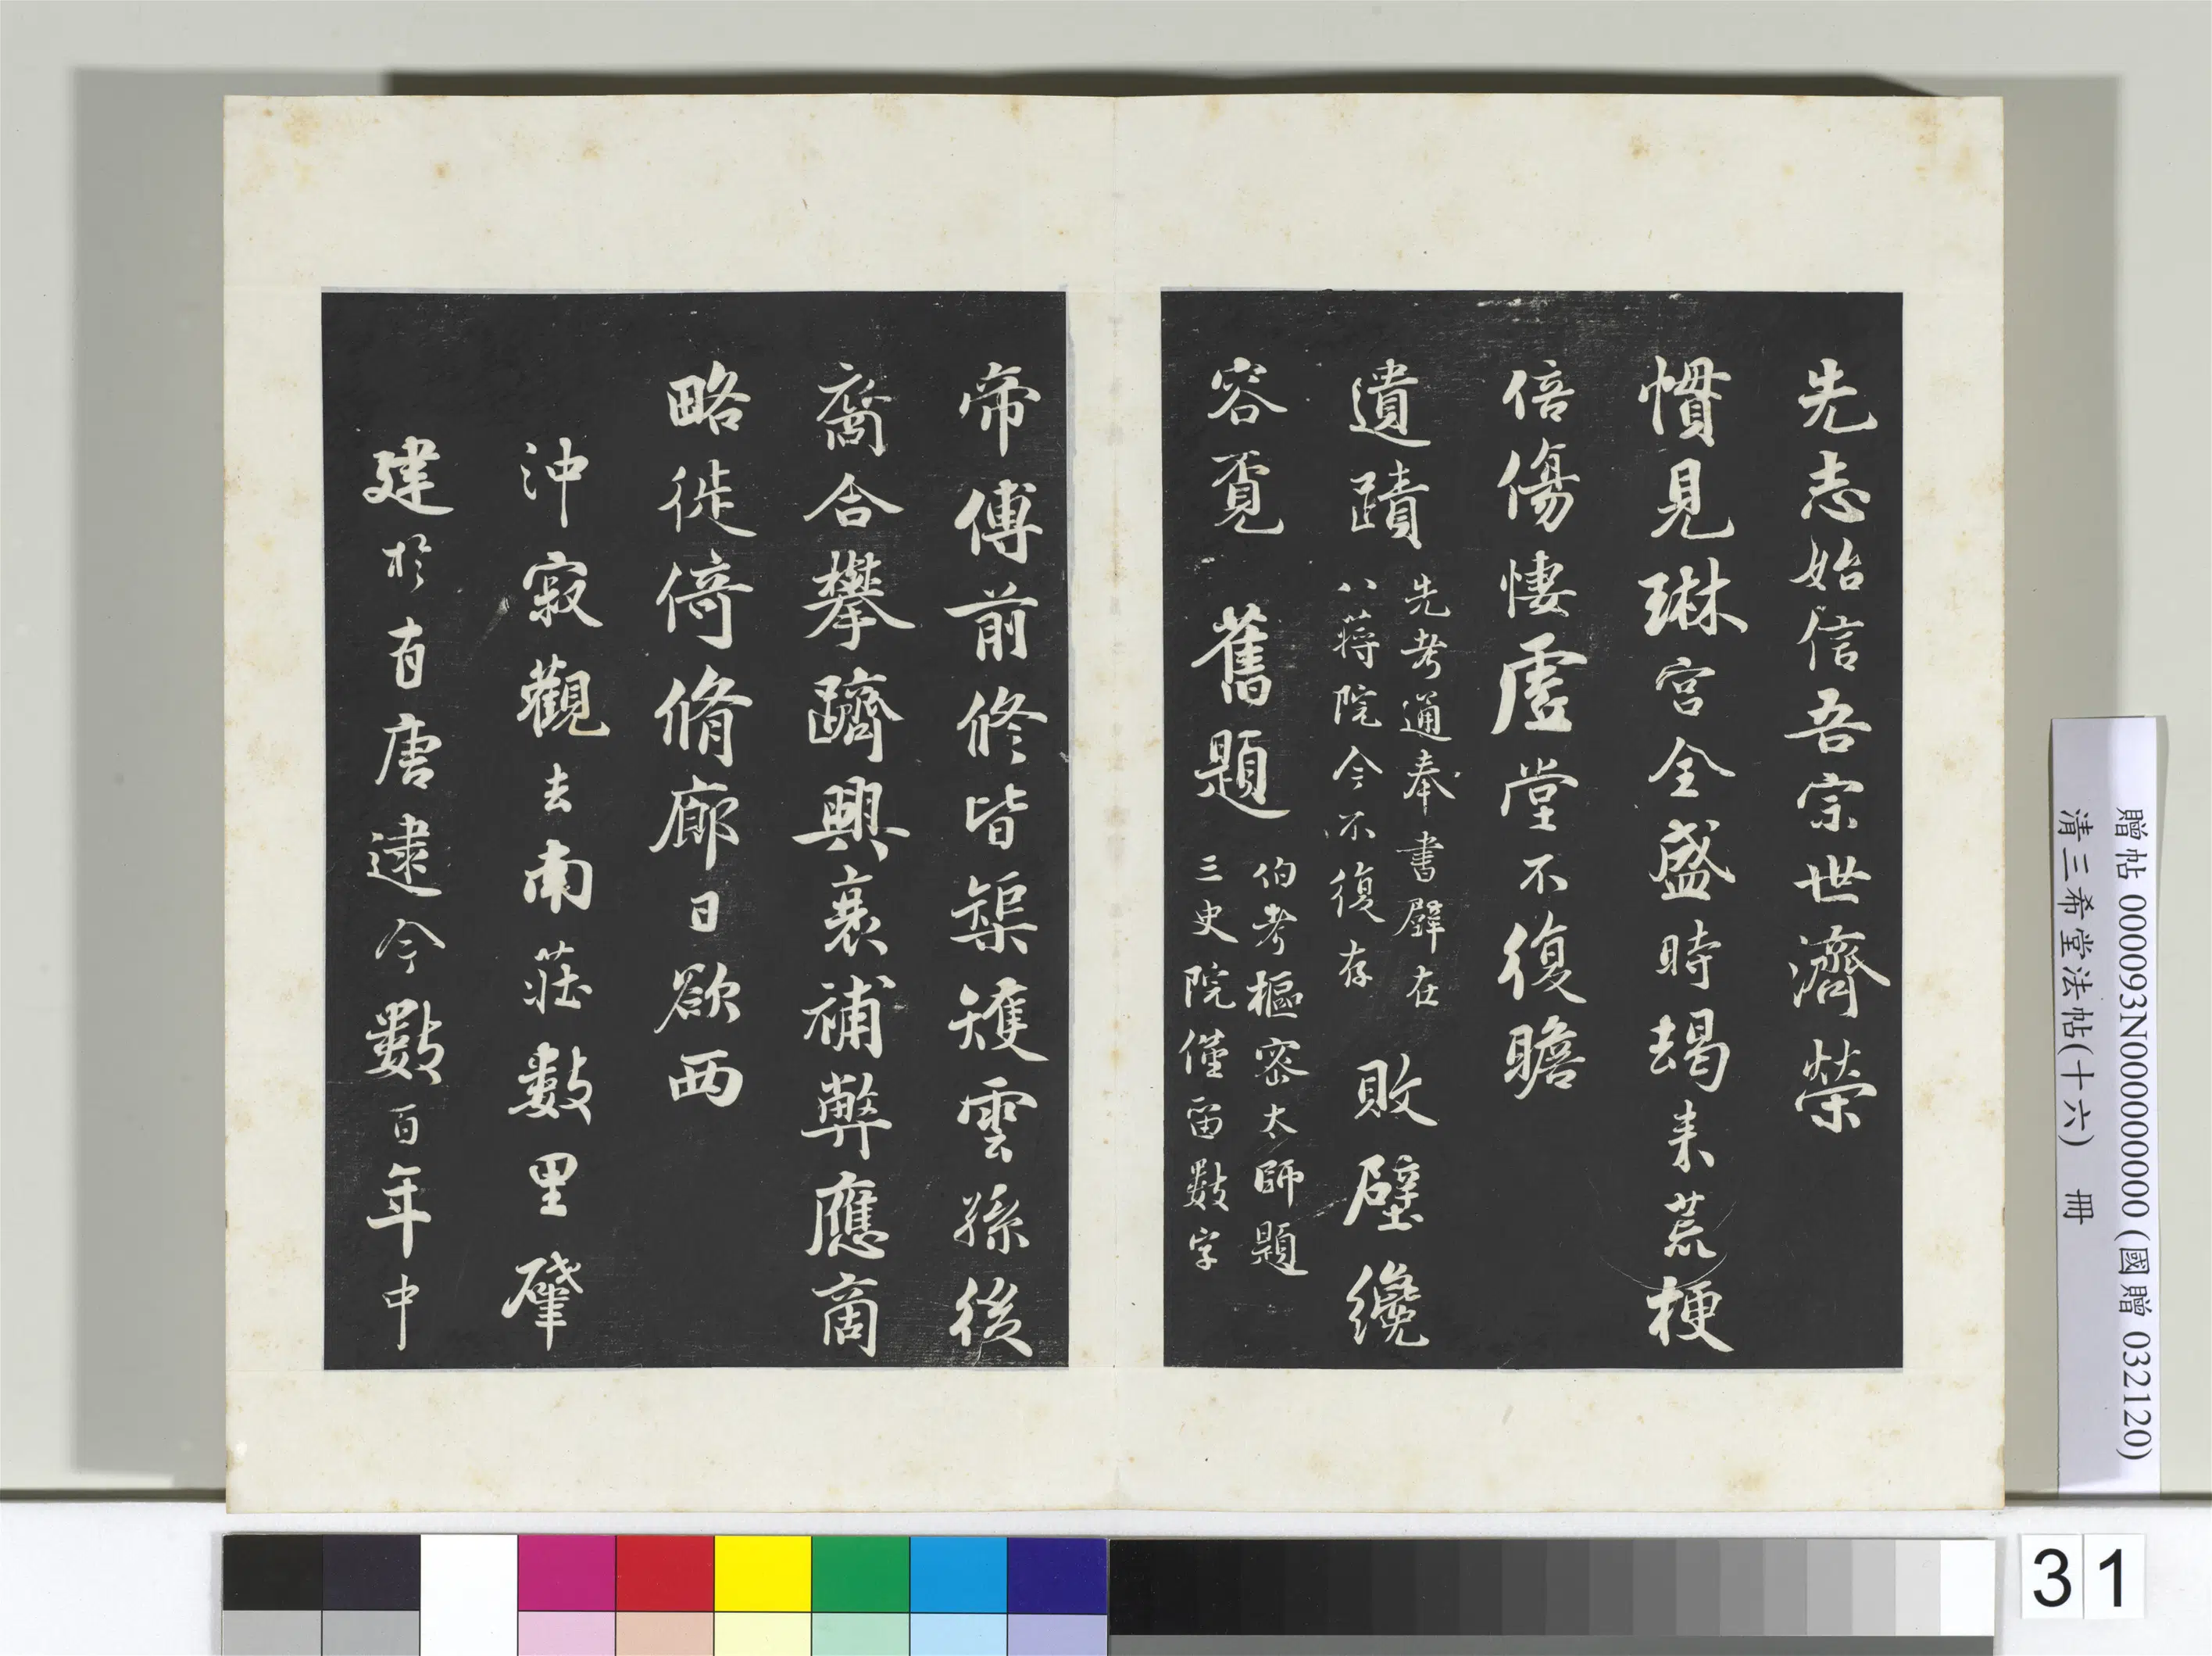 先志始信吾宗世濟榮
慣見琳宮全盛時朅来荒梗
倍傷悽虛堂不復瞻
遺蹟先考通奉書壁在
八蒋院今不復存敗壁纔
容覔舊題伯考樞密太師題
三史院僅留數字
帝傅前修皆榘矱雲孫後
裔合攀躋興衰補弊應商
略徙倚脩廊日欲西
沖寂觀去南莊數里肇
建於有唐逮今數百年中
贈帖 000093N000000000 (國贈 032120)
清三希堂法帖(十六) 冊
31